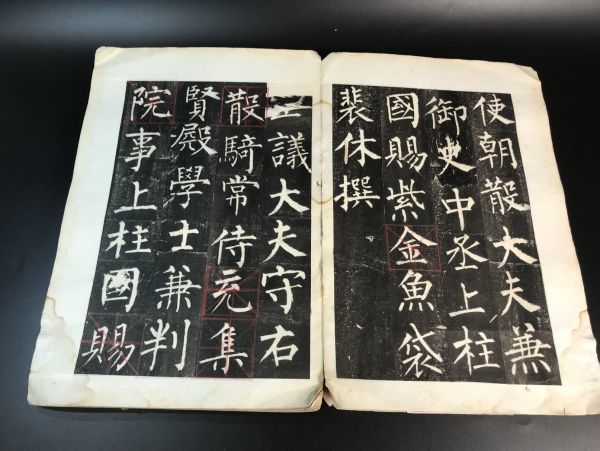 使朝散大夫兼
御史中丞上柱
國賜紫金魚袋
裴休撰
正議大夫守右
散騎常侍充集
賢殿學士兼判
院事上柱國賜